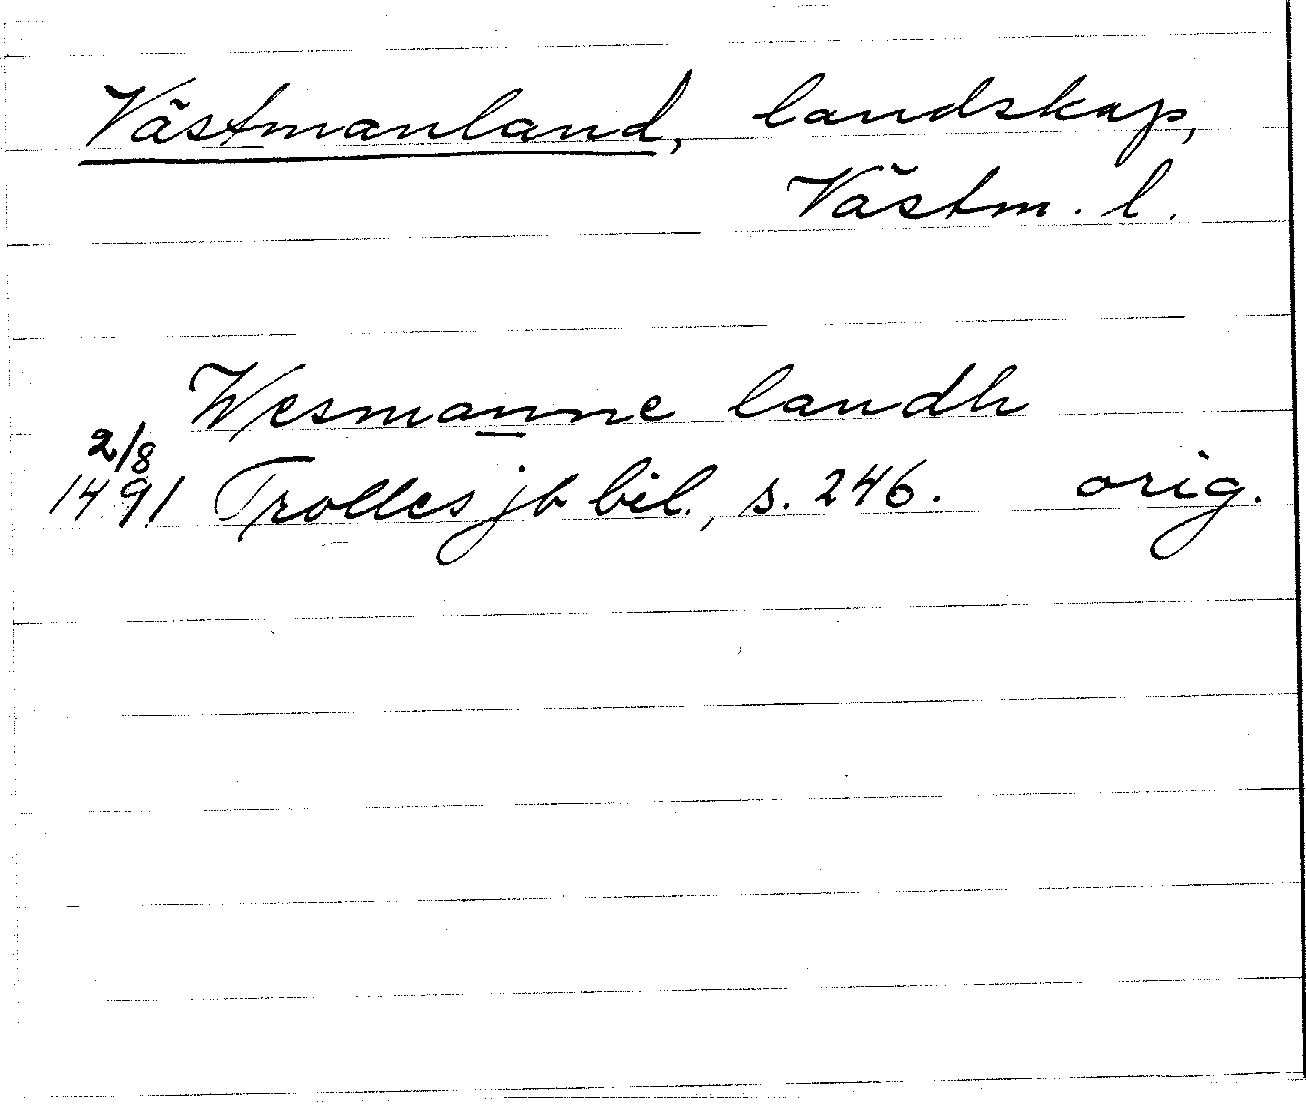 Västmanland, landskap,
Västm. l.
Wesmanne landh
2/8
1491 Trolles jb bil., s. 246. orig.